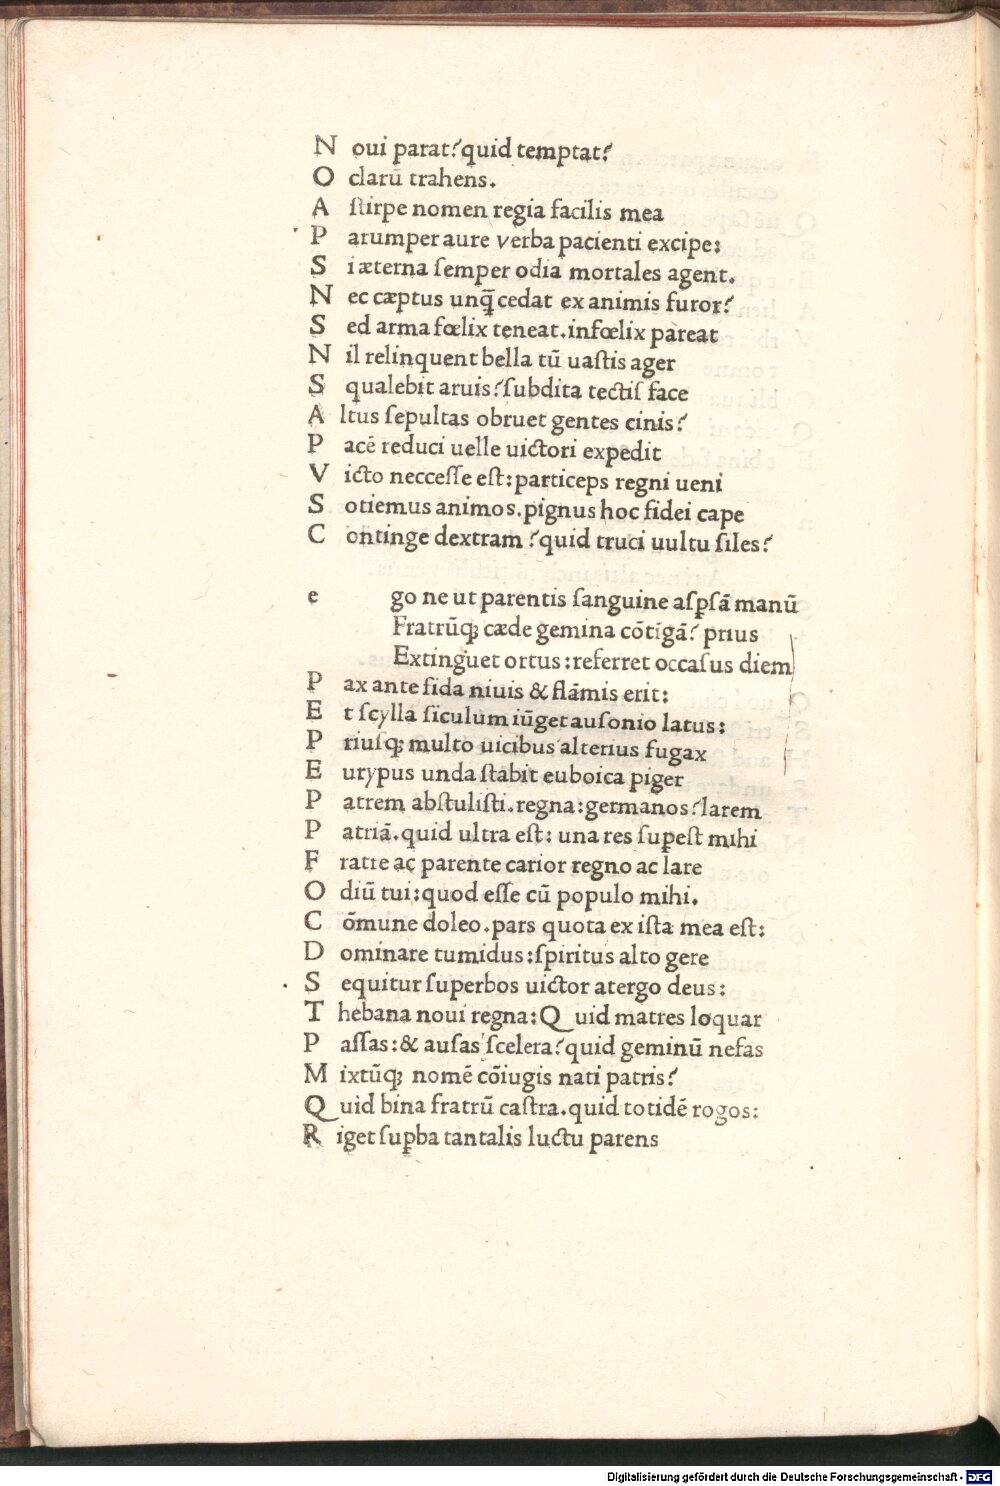 N oui parat? quid temptat?
O clarū trahens.
A ſtirpe nomen regia facilis mea
P arumper aure verba pacienti excipe:
S i æterna ſemper odia mortales agent.
N ec cæptus unq̄ cedat ex animis furor?
S ed arma fœlix teneat. infœlix pareat
N il relinquent bella tū uaſtis ager
S qualebit aruis? ſubdita tectiſ face
A ltus ſepultas obruet gentes cinis?
P acē reduci uelle uictori expedit
V icto necceſſe eſt: particeps regni ueni
S otiemus animos. pignus hoc fidei cape
C ontinge dextram? quid truci uultu ſiles?
e go ne ut parentis ſanguine aſpſā manū
Fratrūq; cæde gemina cōtīgā? prius
Extinguet ortus: referret occaſus diem
P ax ante fida niuis & flāmis erit:
E t ſcylla ſiculum iūget auſonio latus:
P riuſq; multo uicibus alterius fugax
E urypus unda ſtabit euboica piger
P atrem abſtuliſti. regna: germanos? larem
P atriā. quid ultra eſt: una res ſupeſt mihi
F ratre ac parente carior regno ac lare
O diū tui: quod eſſe cū populo mihi.
C ōmune doleo. pars quota ex iſta mea eſt:
D ominare tumidus: ſpiritus alto gere
S equitur ſuperbos uictor atergo deus:
T hebana noui regna: Quid matres loquar
P aſſas: & auſas ſcelera? quid geminū nefas
M ixtūq; nomē cōiugis nati patris?
Q uid bina fratrū caſtra. quid totidē rogos:
R iget ſupba tantalis luctu parens
Digitalisierung gefördert durch die Deutsche Forschungsgemeinschaft - DFG